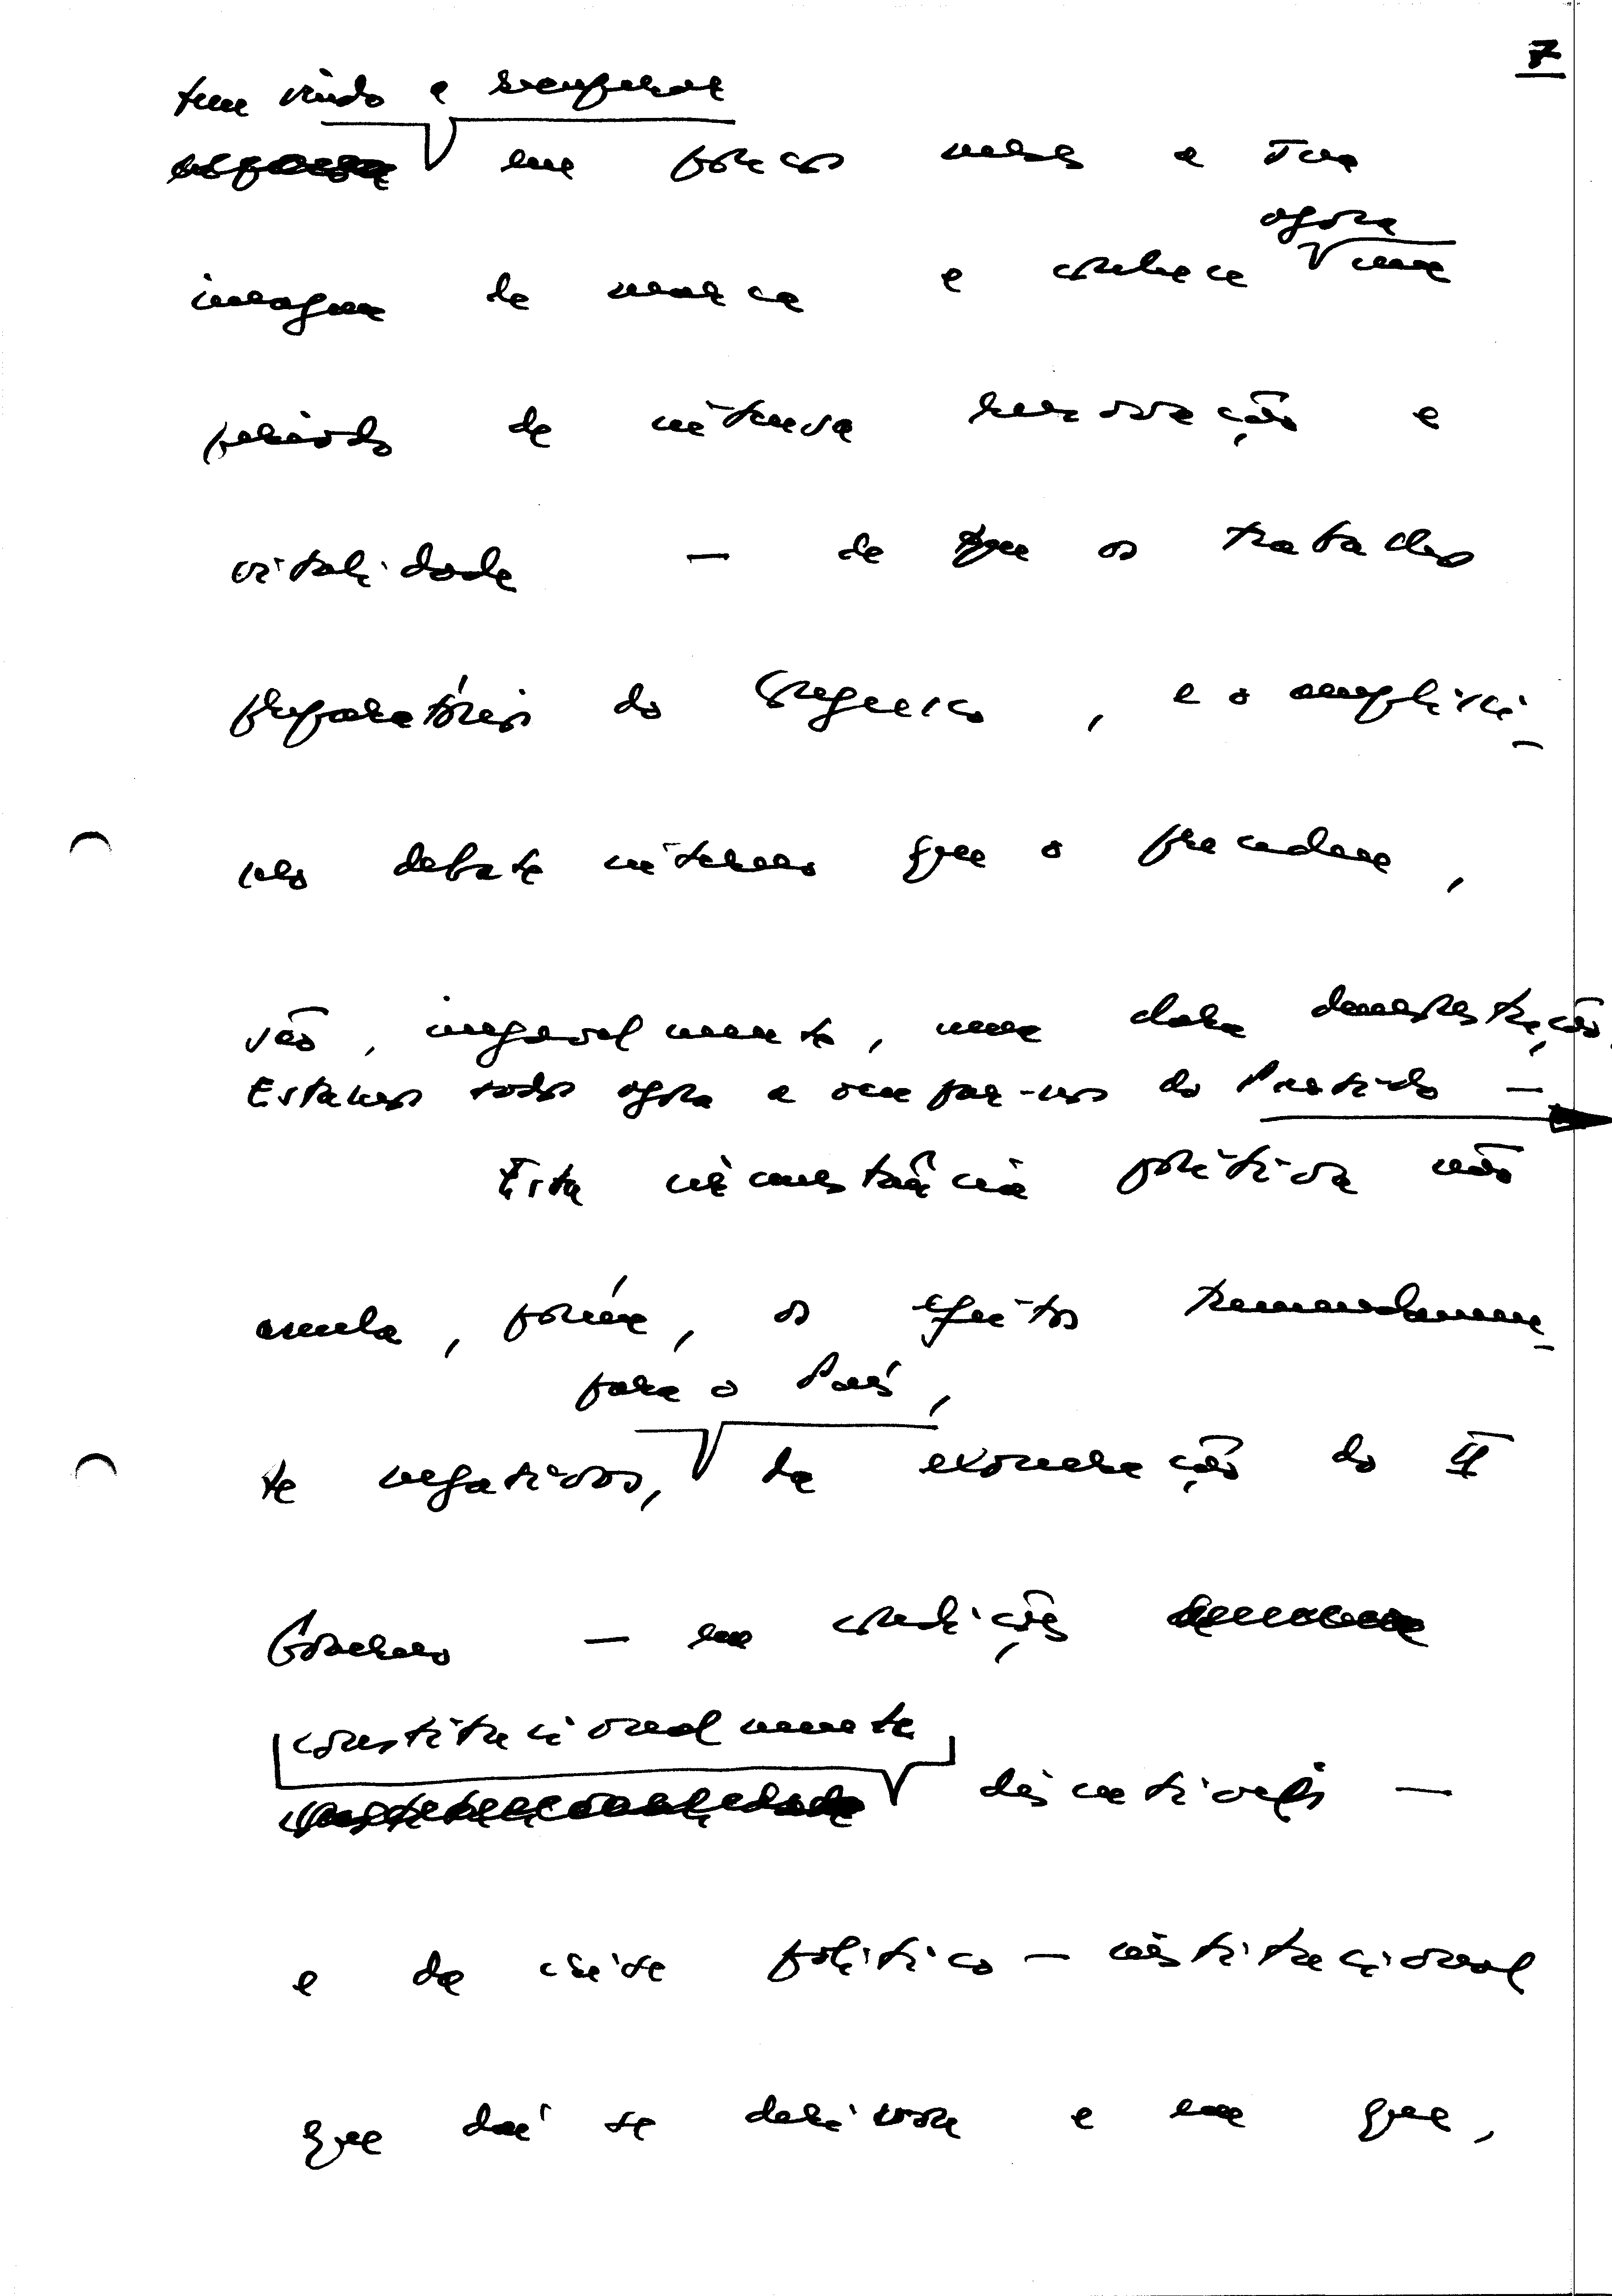 7
tem vindo a recuperar
em poucos meses a sua
agora
imagem de marca e conhece uma
período de intensa renovação e
vitalidade — de que os trabalhos
preparatórios do Congresso, e o amplíssi-
mo debate interno que o precedeu,
são, inegavelmente, uma clara demonstração.
Estamos todos agora a ocupar-nos do Partido —
Esta circunstância política não
anula, porém, os efeitos tremendamen-
para o País,
te negativos, da exoneração do II
Governo — em condições
constitucionalmente
discutíveis —
e da crise político-institucional
que daí se derivou e em que,